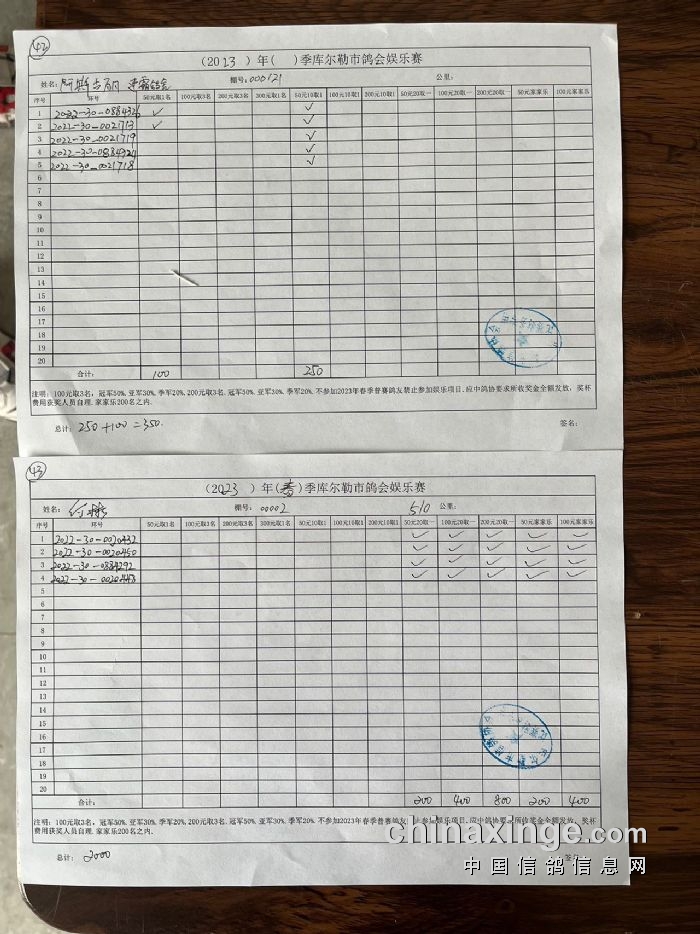 42
(2023)年( )季库尔勒市鸽会娱乐赛
姓名: 棚号:000121 公里:
序号 环号 50元取1名 100元取3名 200元取3名 300元取1名 50元10取1 100元10取1 200元10取1 50元20取一 100元20取一 200元20取一 50元家家乐 100元家家乐
1 2022-30-0884326 ✓ ✓
2 2022-30-0021713 ✓ ✓
3 2022-30-0021719 ✓
4 2022-30-0884324 ✓
5 2022-30-0021718 ✓
6
7
8
9
10
11
12
13
14
15
16
17
18
19
20
合计: 100 250
注明:100元取3名,冠军50%,亚军30%,季军20%,200元取3名.冠军50%,亚军30%,季军20%.不参加2023年春季普赛鸽友禁止参加娱乐项目.应中鸽协要求所收奖金全额发放,奖杯
费用获奖人员自理.家家乐200名之内.
总计:250+100=350. 签名:
43
(2023)年(春)季库尔勒市鸽会娱乐赛
姓名: 棚号:00002 510 公里:
序号 环号 50元取1名 100元取3名 200元取3名 300元取1名 50元10取1 100元10取1 200元10取1 50元20取一 100元20取一 200元20取一 50元家家乐 100元家家乐
1 2022-30-0020432 ✓ ✓ ✓ ✓ ✓
2 2022-30-0020450 ✓ ✓ ✓ ✓ ✓
3 2022-30-0884292 ✓ ✓ ✓ ✓ ✓
4 2022-30-0020448 ✓ ✓ ✓ ✓ ✓
5
6
7
8
9
10
11
12
13
14
15
16
17
18
19
20
合计: 200 400 800 200 400
注明:100元取3名,冠军50%,亚军30%,季军20%,200元取3名.冠军50%,亚军30%,季军20%.不参加2023年春季普赛鸽友禁止参加娱乐项目.应中鸽协要求所收奖金全额发放,奖杯
费用获奖人员自理.家家乐200名之内.
总计:2000 签
chinaxinge.com
中国信鸽信息网